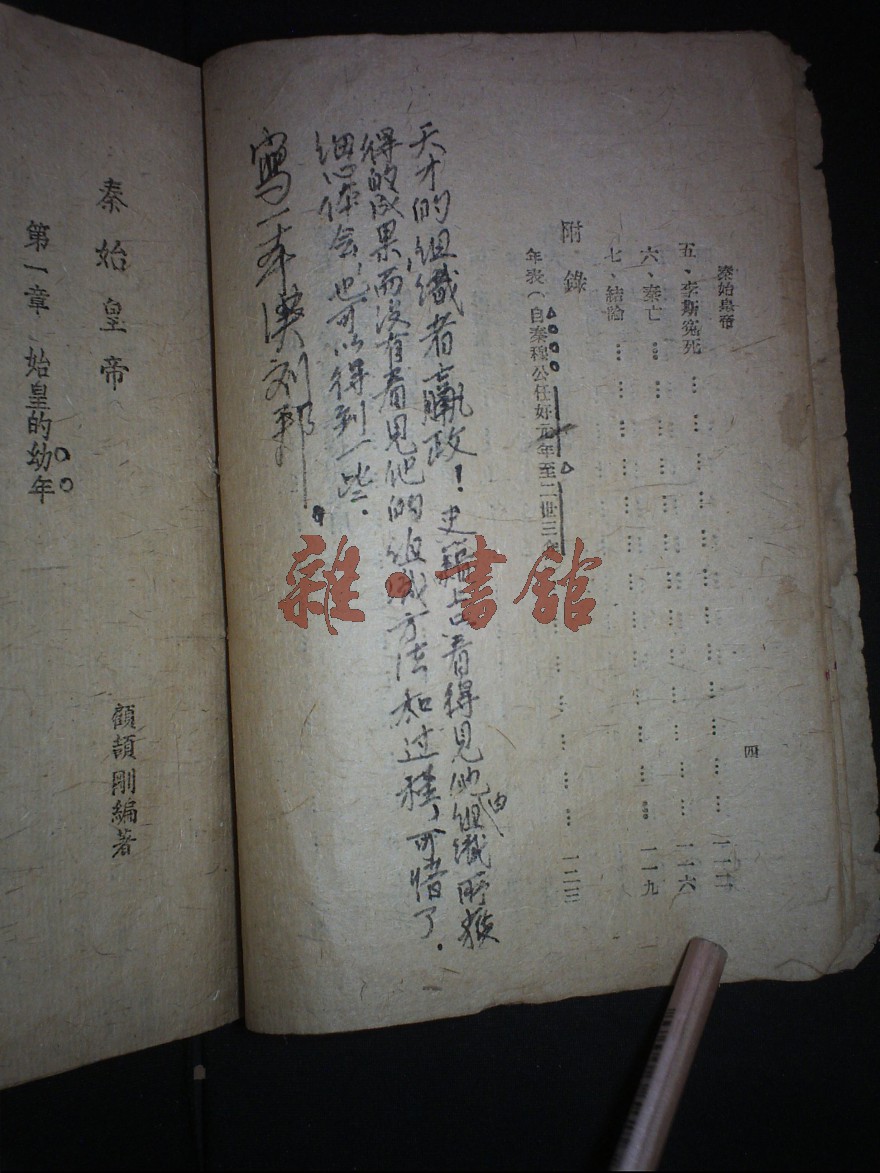 秦始皇帝
五、李斯冤死 … 一一二
六、秦亡 … 一一六
七、結論 … 一一九
附 錄
年表(自秦穆公任好元年至二世三年 … 一二三
四
天才的组織者嬴政!史籍上看得見他由组織所獲
得的成果,而没有看見他的组成方法和过程,可惜了.
细心体会,也可以得到一些.
寫一本漢刘邦.
秦始皇帝
顧頡剛編著
第一章 始皇的幼年
雜·書舘